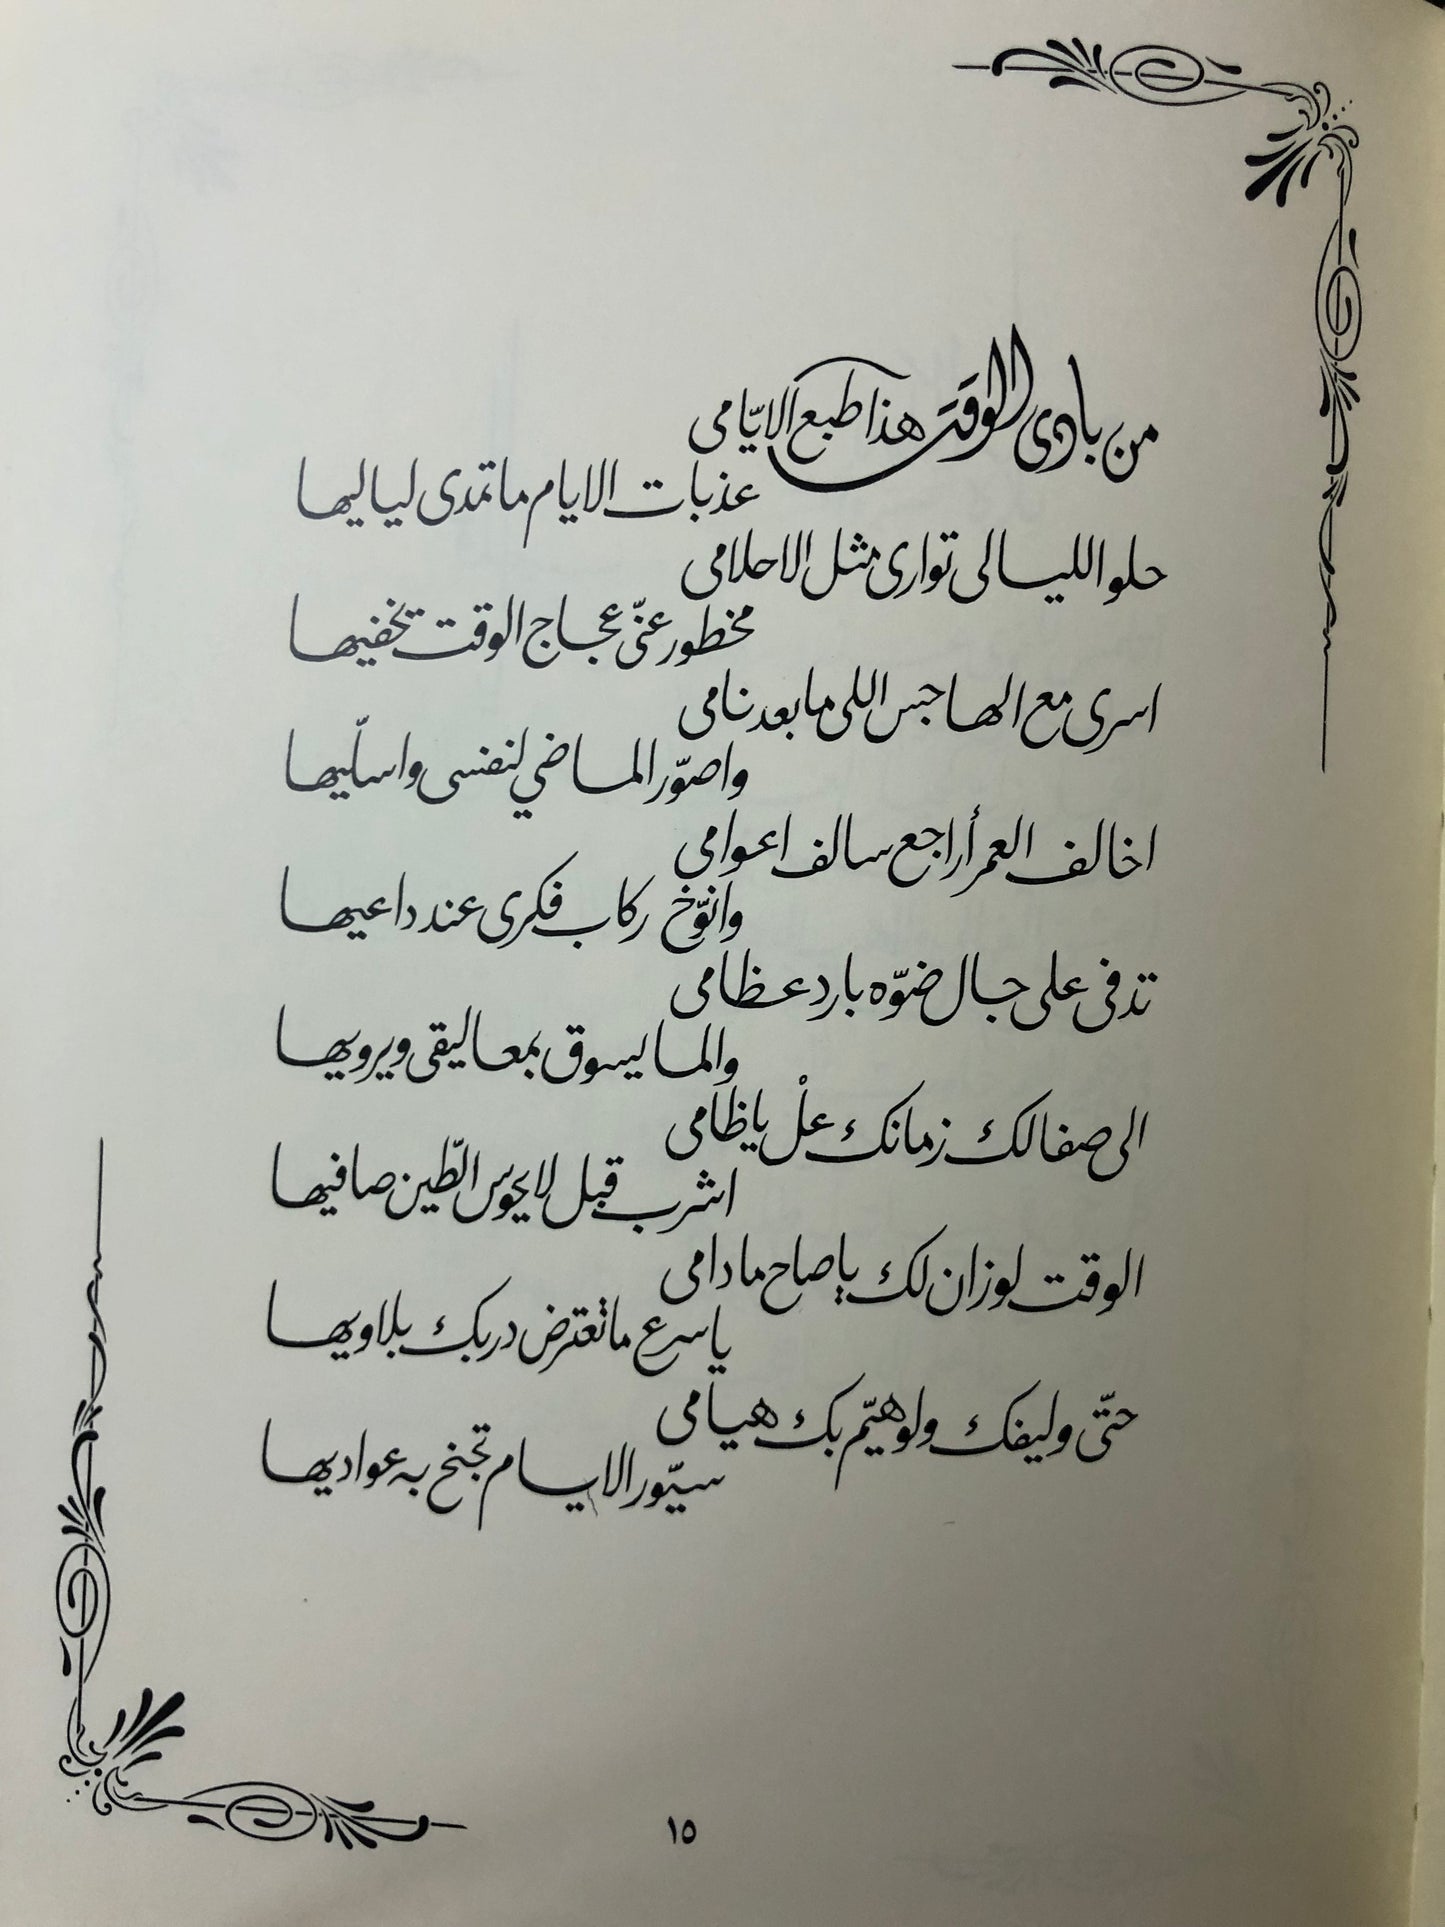 من بادى الوقت هذا طبع الايّامى
عذبات الايام ما تمدى لياليها
حلو الليالى توارى مثل الاحلامى
مخطور عنّى عجاج الوقت يخفيها
اسرى مع الهاجس اللى ما بعد نامى
واصوّر الماضي لنفسى واسلّيها
اخالف العمر أراجع سالف اعوامى
وانوّخ ركاب فكرى عند داعيها
تدفى على جال ضوّه بارد عظامى
والما يسوق بمعاليقى ويرويها
الى صفالك زمانك علْ ياظامى
اشرب قبل لا يحوس الطّين صافيها
الوقت لو زان لك ياصاح ما دامى
ياسرع ما تعترض دربك بلاويها
حتّى وليفك ولو هيّم بك هيامى
سيّور الايام تجنح به عواديها
١٥